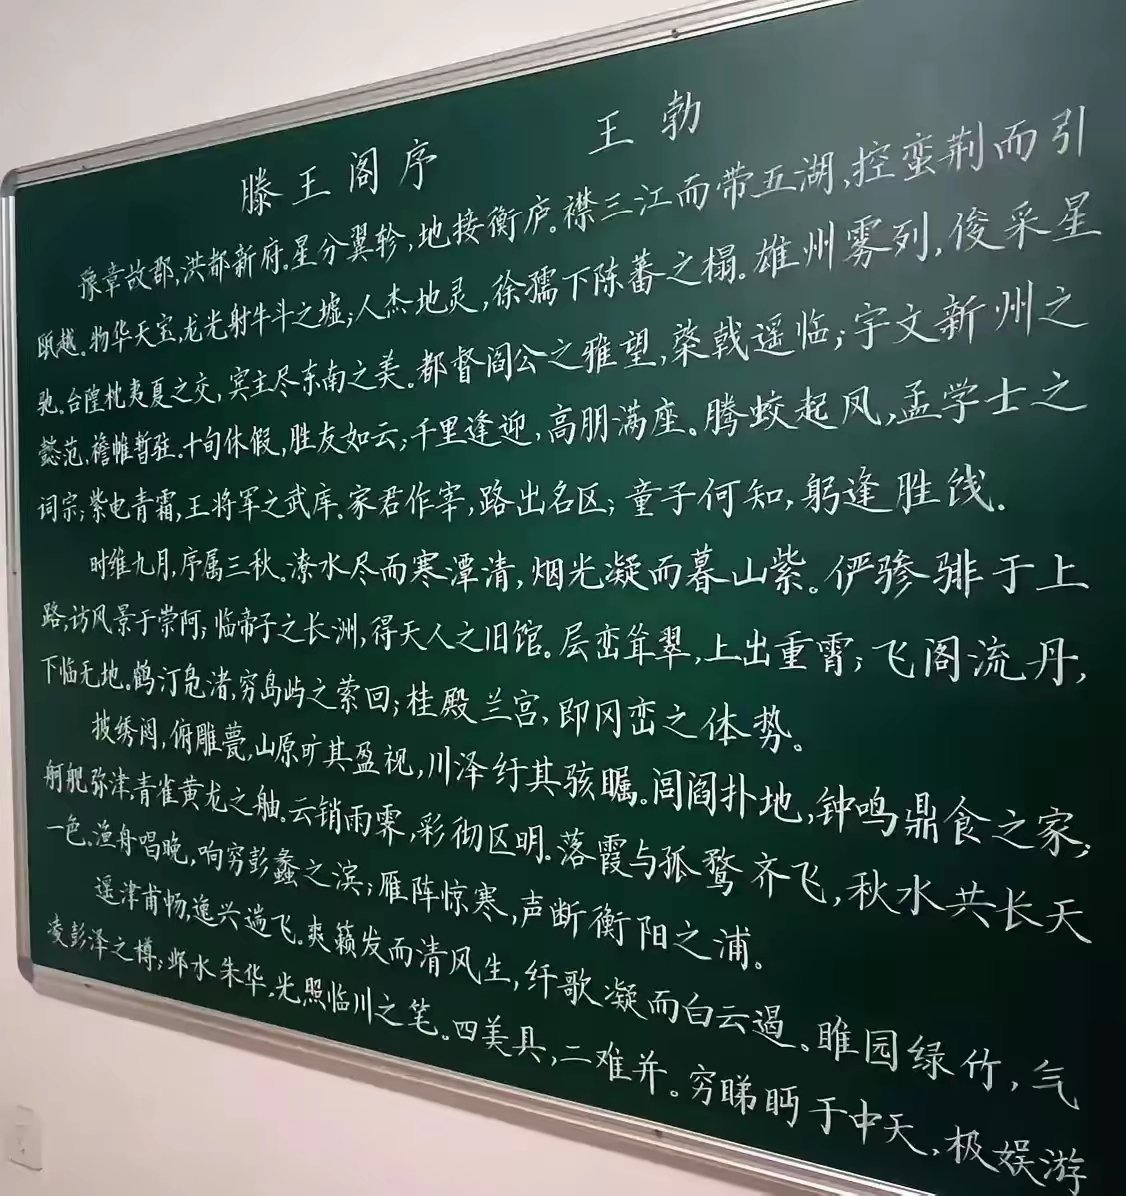 滕王阁序 王勃
豫章故郡,洪都新府。星分翼轸,地接衡庐。襟三江而带五湖,控蛮荆而引
瓯越。物华天宝,龙光射牛斗之墟;人杰地灵,徐孺下陈蕃之榻。雄州雾列,俊采星
驰。台隍枕夷夏之交,宾主尽东南之美。都督阎公之雅望,棨戟遥临;宇文新州之
懿范,襜帷暂驻。十旬休假,胜友如云;千里逢迎,高朋满座。腾蛟起凤,孟学士之
词宗;紫电青霜,王将军之武库。家君作宰,路出名区;童子何知,躬逢胜饯。
时维九月,序属三秋。潦水尽而寒潭清,烟光凝而暮山紫。俨骖騑于上
路,访风景于崇阿;临帝子之长洲,得天人之旧馆。层峦耸翠,上出重霄;飞阁流丹,
下临无地。鹤汀凫渚,穷岛屿之萦回;桂殿兰宫,即冈峦之体势。
披绣闼,俯雕甍,山原旷其盈视,川泽纡其骇瞩。闾阎扑地,钟鸣鼎食之家;
舸舰弥津,青雀黄龙之舳。云销雨霁,彩彻区明。落霞与孤鹜齐飞,秋水共长天
一色。渔舟唱晚,响穷彭蠡之滨;雁阵惊寒,声断衡阳之浦。
遥津甫畅,逸兴遄飞。爽籁发而清风生,纤歌凝而白云遏。睢园绿竹,气
凌彭泽之樽;邺水朱华,光照临川之笔。四美具,二难并。穷睇眄于中天,极娱游